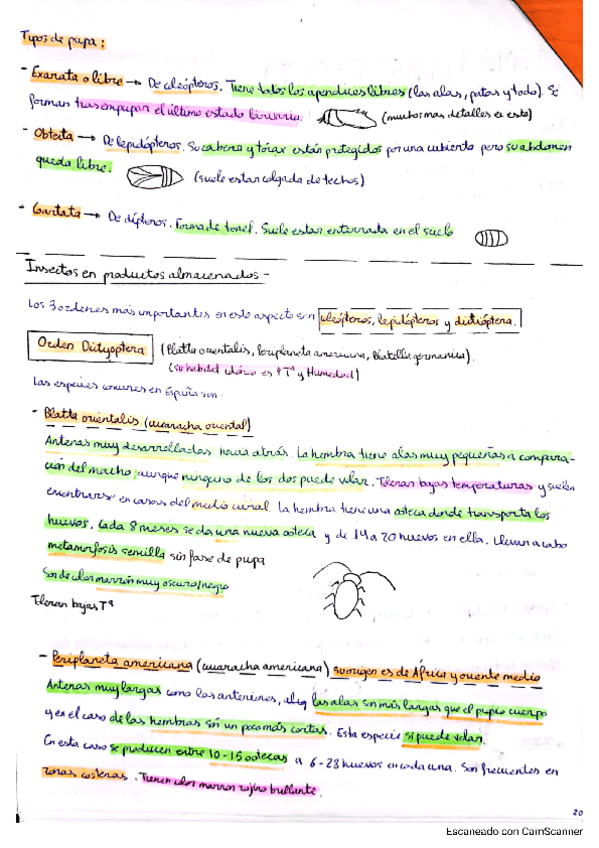 Tipos de pupa:
- Exarata o libre → De coleópteros. Tiene todos los apendices libres (las alas, patas y todo). Se
forman tras empupar el último estado larvario. (mucho mas detalles en esta)
- Obtecta → De lepidópteros. Su cabeza y tórax están protegidos por una cubierta pero su abdomen
queda libre. (suele estar colgada de techos)
- Coartata → De dípteros. Forma de tonel. Suele estar enterrada en el suelo
Insectos en productos almacenados -
Los 3 ordenes más importantes en este aspecto son coleópteros, lepidópteros y dictióptera.
Orden Dictyoptera (Blatta orientalis, Periplaneta americana, Blatella germanica).
(su habitat idóneo es ↑Tª y Humedad)
Las especies comunes en España son
- Blatta orientalis (cucaracha oriental)
Antenas muy desarrolladas hacia atrás. La hembra tiene alas muy pequeñas a compara-
ción del macho, aunque ninguno de los dos puede volar. Toleran bajas temperaturas y suelen
encontrarse en casas del medio rural. La hembra tiene una ooteca donde transporta los
huevos. Cada 8 meses se da una nueva ooteca y de 14 a 20 huevos en ella. Llevan a cabo
metamorfosis sencilla sin fase de pupa
Son de color marrón muy oscuro/negro
Toleran bajas Tª
- Periplaneta americana (cucaracha americana) Su origen es de África y oriente medio
Antenas muy largas como las anteriores, las alas son más largas que el propio cuerpo
y en el caso de las hembras son un poco más cortas. Esta especie si puede volar.
En esta caso se producen entre 10-15 ootecas a 6-28 huevos en cada una. Son frecuentes en
zonas costeras. Tienen color marron rojizo brillante.
20
Escaneado con CamScanner